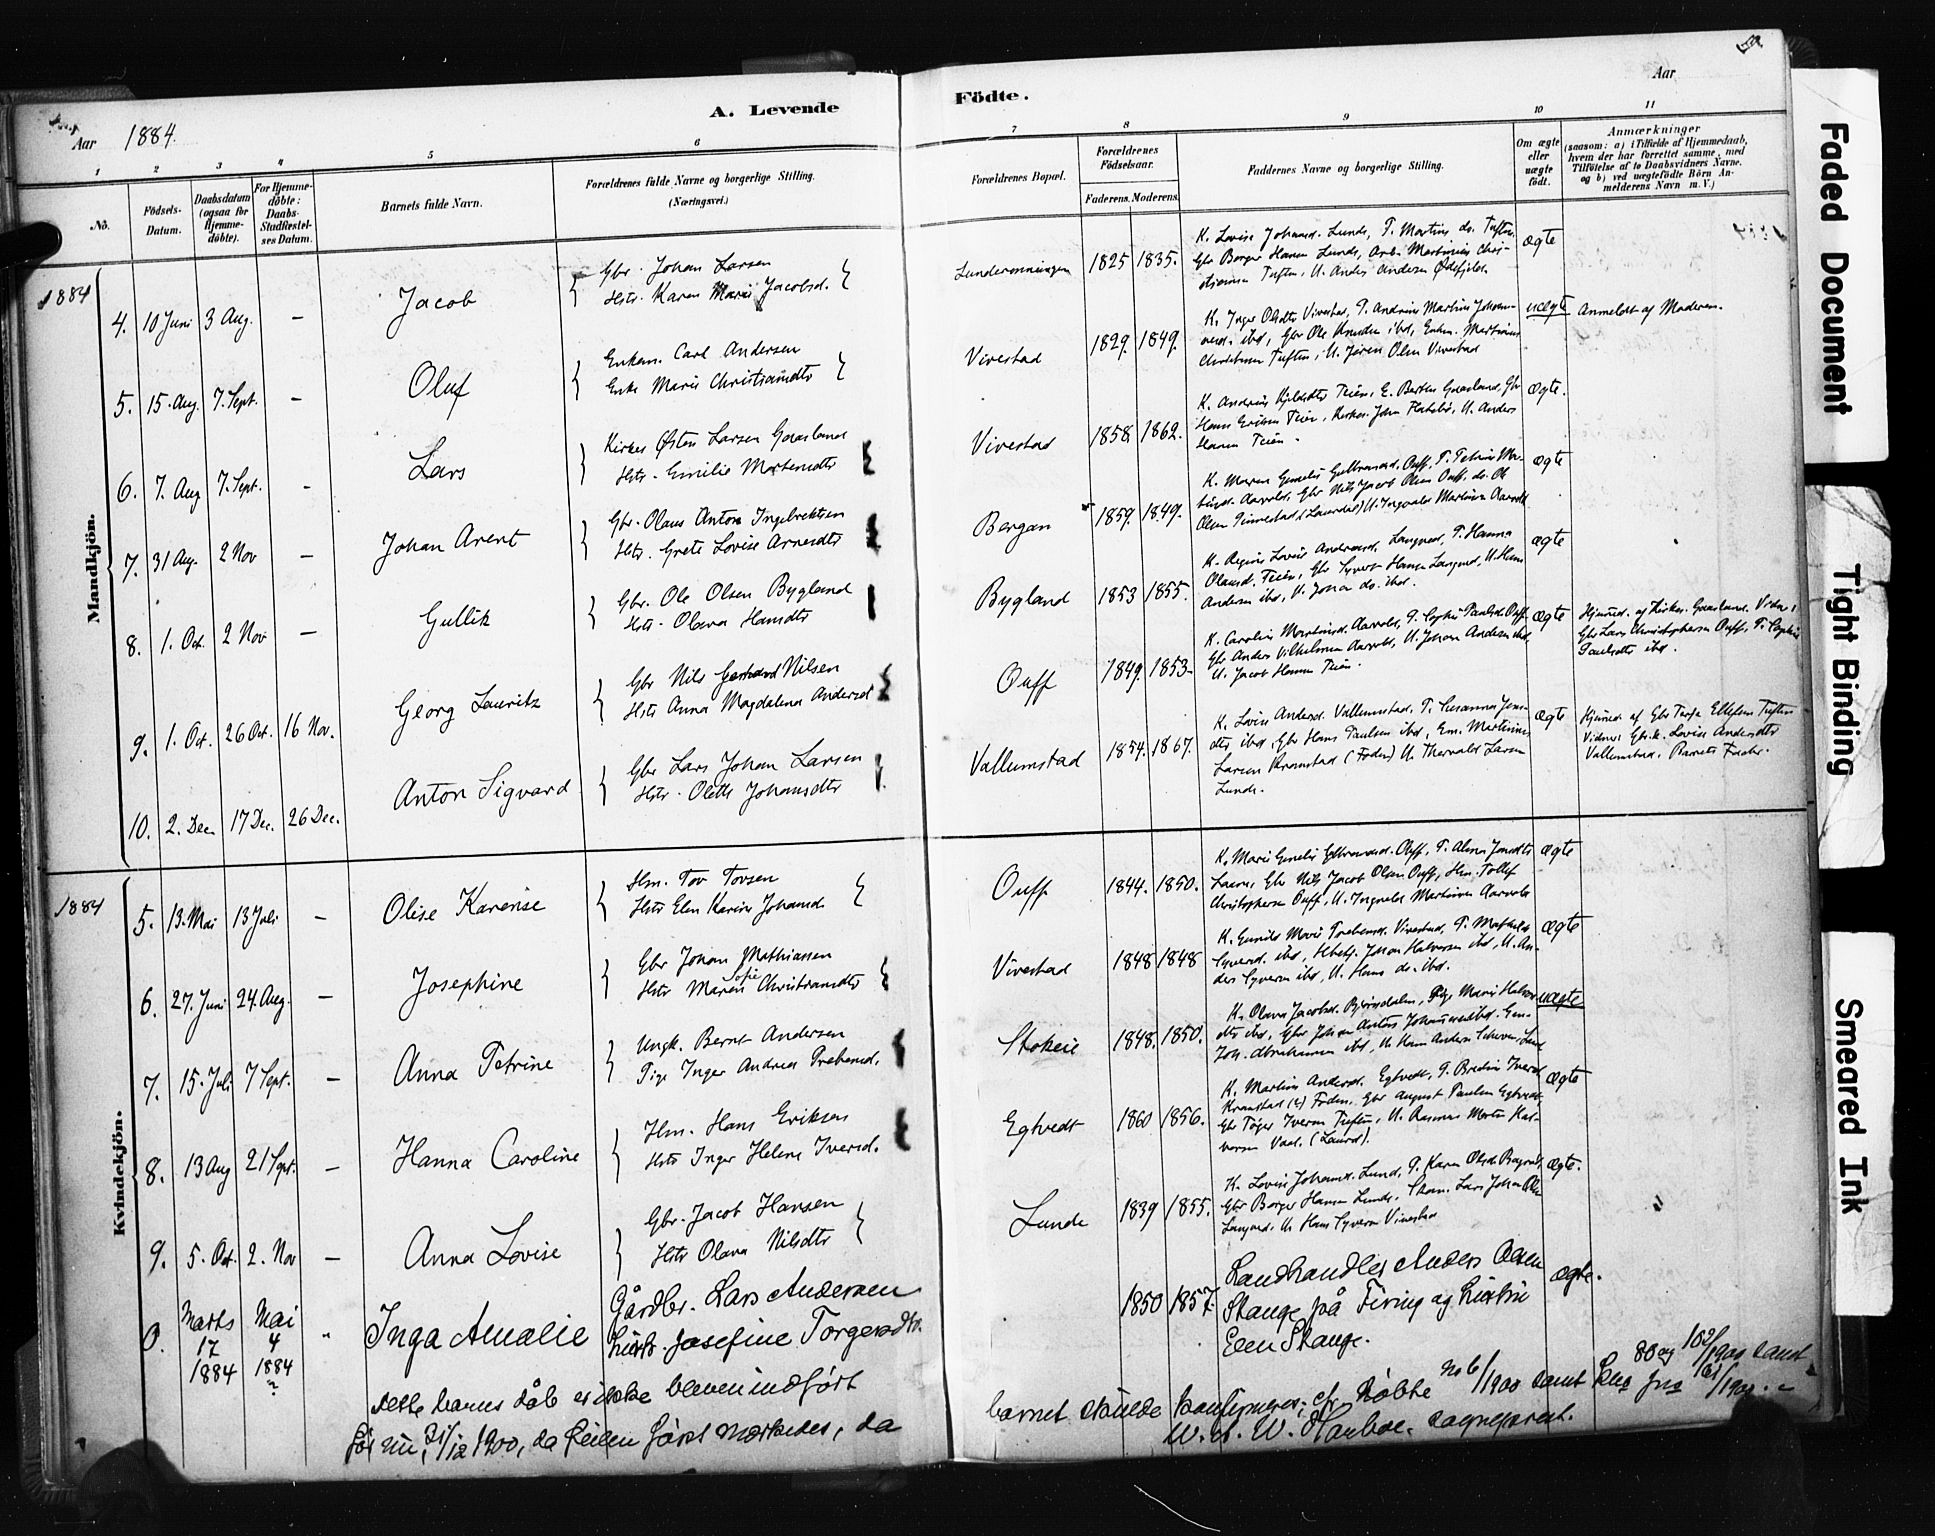 Aar 1884.
A. Levende
Födte.
Aar
59
1 2 3 4 5 6 7 8 9 10 11
No.
Födsels-Datum.
Daabsdatum (ogsaa for Hjemme-döbte).
For Hjemme-döbte: Daabs-Stadfæstel-ses Datum.
Barnets fulde Navn.
Forældrenes fulde Navne og borgerlige Stilling.
(Næringsvei.)
Forældrenes Bopæl.
Forældrenes Födselsaar.
Faderens. Moderens.
Faddernes Navne og borgerlige Stilling.
Om ægte eller uægte födt.
Anmærkninger
(saasom: a) i Tilfælde af Hjemmedaab, hvem der har forrettet samme, med Tilföielse af to Daabsvidners Navne, og b) ved uægtefödte Börn An-melderens Navn m. V.)
1884
Mandkjön.
4. 10 Juni 3 Aug. – Jacob
Gbr. Johan Larsen
Hstr. Karen Marie Jacobsd.
Lunderønningen 1825 1835.
K. Lovise Johannsd. Lunde, P. Martine do. Tuften,
Gbr Borger Hansen Lunde, Arb. Martinius Chri-
stiansen Tuften, U. Anders Andersen Ødefjeld.
ægte
5. 15. Aug. 7. Sept. – Oluf
Enkem. Carl Andersen
Enke Marie Christiansdtr
Vivestad 1829. 1849.
K. Inger Olsdtr Vivestad, P. Andrine Martine Johan-
nesd. ibd, Gbr Ole Knudsen ibd, Enkm. Martinius
Christiansen Tuften, U. Jören Olsen Vivestad
uægte Anmeldt af Moderen.
6. 7. Aug 7. Sept. – Lars
Kirkes. Østen Larsen Gaasland
Hstr. Emilie Mortensdtr
Vivestad 1858. 1862.
Hans Eriksen Teien, U. Anders
Hansen Teien.
ægte.
7. 31 Aug. 2 Nov – Johan Arent
Gbr. Olaus Anton Ingebretsen
Hstr. Grete Lovise Arnesdtr
Bergan 1859. 1849.
K. Maren Emelie Gulbrandsd. Ouff, P. Petrine Ma-
thisd. Aarvold, Gbr Nils Jacob Olsen Ouff, do. Ole
ægte
8. 1. Oct. 2 Nov – Gullik
Gbr. Ole Olsen Bygland
Hstr. Olava Hansdtr
Bygland 1853 1855.
K. Regine Lovise Andersd. Langved, P. Hanna
Olausd. Teien, Gbr Syvert Hansen Langved, U. Hans
Andersen ibd, U. Johan do. ibd.
ægte
9. 1. Oct. 26 Oct. 16 Nov. Georg Lauritz
Gbr Nils Gerhard Nilsen
Hstr Anna Magdalena Andersd
Ouff 1849. 1853.
K. Caroline Martinsd. Aarvold, P. Sophie Paulsd. Ouff,
Gbr Anders Vilhelmsen Aarvold, U. Johan Andersen ibd
U. Jacob Hansen Teien.
ægte
Hjemmed. af Kirkes. Gaasland. Vidner:
Gbr Lars Christophersen Ouff, P. Sophie
Paulsdtr ibd.
10. 2. Dec 17 Dec. 26 Dec. Anton Sigvard
Gbr Lars Johan Larsen
Hstr. Olette Johansdtr
Vallumstad 1854. 1867.
K. Lovise Andersd. Vallumstad, P. Susanna Jens-
dtr ibd, Gbr Hans Paulsen ibd, Em. Martinius
Larsen Kramstad (Foden) U. Thorvald Larsen
Lunde.
ægte
Hjemmed. af Gbr Terje Ellefsen Tuften
Vidner: Gbr.k. Lovise Andersdtr
Vallumstad. Barnets Fader.
1884
Kvindekjön.
5. 13. Mai 13 Juli – Olise Karense
Hm. Tov Tovsen
Hstr Elen Karine Johansd
Ouff 1844. 1850.
K. Marie Emelie Gulbrandsd. Ouff, P. Alma Jonsdtr
Gbr Nils Jacob Olsen Ouff, Hm. Tollef
Christophersen Ouff, U. Ingvald Martinsen Aarvold
ægte
6. 27. Juni 24. Aug. – Josephine
Gbr Johan Mathiassen
Hstr Maren Sofie Christiansdtr
Vivestad 1848 1848
K. Gunild Marie Prebensd. Vivestad, P. Mathilde
Syversd. ibd, Johan Halvorsen ibd, U. An-
ders Syversen ibd, U. Hans do. ibd.
ægte
7. 15. Juli 7 Sept. – Anna Petrine
Ungk. Bernt Andersen
Pige Inger Andrea Prebensd.
Stokeie 1848. 1850.
K. Olava Jacobsd. Bjørndalen, Pige Marie Halvor-
dtr ibd, Gbr Johan Anton Johannessen ibd.
uægte
8. 13 Aug 21 Sept. – Hanna Caroline
Hm. Hans Eriksen
Hstr Inger Helene Iversd.
Eghvedt 1860 1856.
K. Martine Andersd. Eghvedt, P. Bredine Iversd
Gbr August Paulsen Eghvedt
ægte
9. 5. Oct. 2. Nov – Anna Lovise
Gbr. Jacob Hansen
Hstr Olava Nilsdtr
Lunde 1839 1855.
K. Lovise Johannsd. Lund, P. Karen Olsd.
Gbr Borger Hansen Lunde, Lars Johan Olsen
Langved. U. Hans Syversen Vivestad
ægte.
0. Marts 17 1884 Mai 4 1884 ? „ Inga Amalie
Gårdbr. Lars Andersen
Hustr. Josefine Torgersdtr.
1850 1857.
Landhandler Anders Olsen
Stange på Firing og hustru
Elen Stange.
ægte.
Dette barns dåb er ikke bleven indført
før nu, 21/12 1900, da feilen først mærkedes, da
barnet skulde konfirmeres; cfr. døbte No 6/1900 samt
80 og 162/1900 samt 161/1900.
W. Harboe. sogneprest.
Faded Document
Tight Binding
Smeared Ink